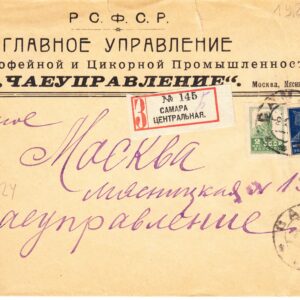 Р С. Ф С Р.
ГЛАВНОЕ УПРАВЛЕНИЕ
офейной и Цикорной Промышленност
„ЧАЕУПРАВЛЕНИЕ“.
Москва, Мясн
З
№ 145
САМАРА
ЦЕНТРАЛЬНАЯ.
Москва
Мясницкая
аеуправление